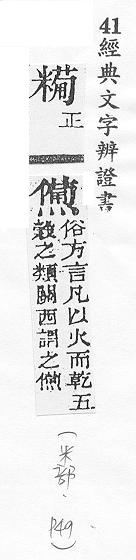 41 經典文字辨證書
糒 正
俗方言凡以火而乾五
穀之類關西謂之
(米部. 149)